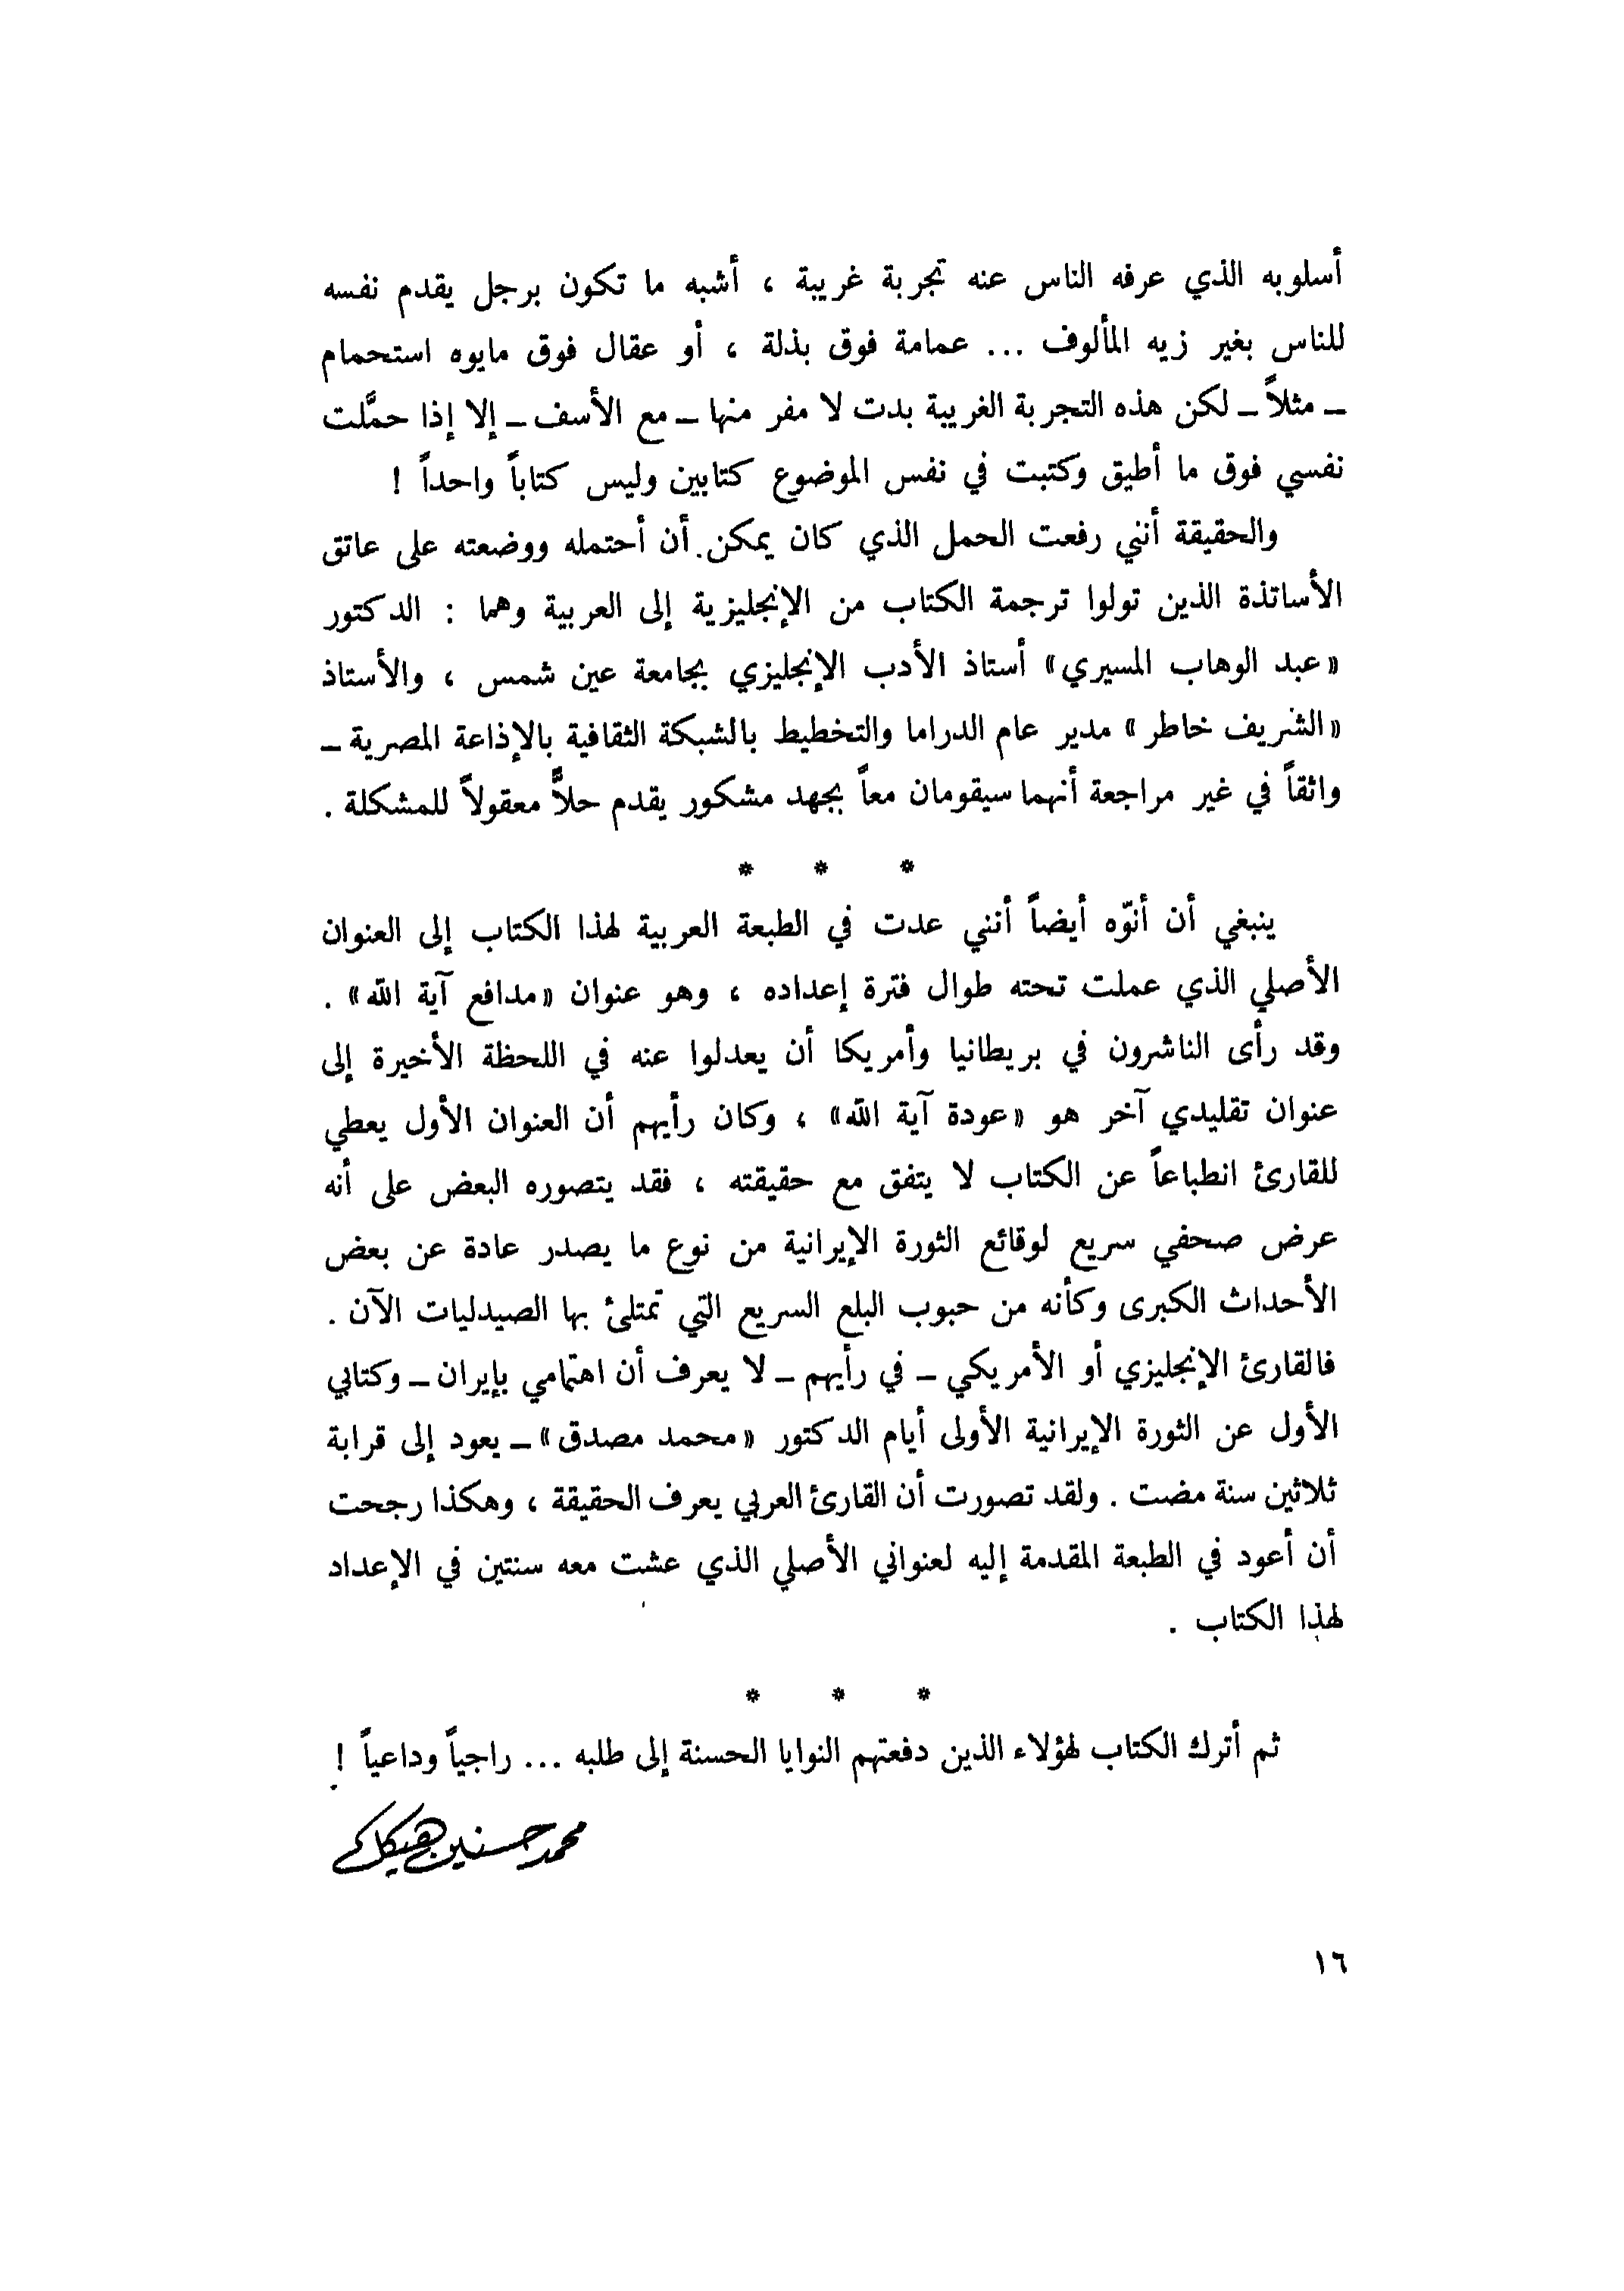 أسلوبه الذي عرفه الناس عنه تجربة غريبة ، أشبه ما تكون برجل يقدم نفسه
للناس بغير زيه المألوف ... عمامة فوق بذلة ، أو عقال فوق مايوه استحمام
ــ مثلاً ــ لكن هذه التجربة الغريبة بدت لا مفر منها ــ مع الأسف ــ إلا إذا حمَّلت
نفسي فوق ما أطيق وكتبت في نفس الموضوع كتابين وليس كتاباً واحداً !
والحقيقة أنني رفعت الحمل الذي كان يمكن أن أحتمله ووضعته على عاتق
الأساتذة الذين تولوا ترجمة الكتاب من الإنجليزية إلى العربية وهما : الدكتور
«عبد الوهاب المسيري» أستاذ الأدب الإنجليزي بجامعة عين شمس ، والأستاذ
«الشريف خاطر» مدير عام الدراما والتخطيط بالشبكة الثقافية بالإذاعة المصرية ــ
واثقاً في غير مراجعة أنهما سيقومان معاً بجهد مشكور يقدم حلاًّ معقولاً للمشكلة .
* * *
ينبغي أن أنوّه أيضاً أنني عدت في الطبعة العربية لهذا الكتاب إلى العنوان
الأصلي الذي عملت تحته طوال فترة إعداده ، وهو عنوان «مدافع آية الله» .
وقد رأى الناشرون في بريطانيا وأمريكا أن يعدلوا عنه في اللحظة الأخيرة إلى
عنوان تقليدي آخر هو «عودة آية الله» ، وكان رأيهم أن العنوان الأول يعطي
للقارئ انطباعاً عن الكتاب لا يتفق مع حقيقته ، فقد يتصوره البعض على أنه
عرض صحفي سريع لوقائع الثورة الإيرانية من نوع ما يصدر عادة عن بعض
الأحداث الكبرى وكأنه من حبوب البلع السريع التي تمتلئ بها الصيدليات الآن .
فالقارئ الإنجليزي أو الأمريكي ــ في رأيهم ــ لا يعرف أن اهتمامي بإيران ــ وكتابي
الأول عن الثورة الإيرانية الأولى أيام الدكتور «محمد مصدق» ــ يعود إلى قرابة
ثلاثين سنة مضت . ولقد تصورت أن القارئ العربي يعرف الحقيقة ، وهكذا رجحت
أن أعود في الطبعة المقدمة إليه لعنواني الأصلي الذي عشت معه سنتين في الإعداد
لهذا الكتاب .
* * *
ثم أترك الكتاب لهؤلاء الذين دفعتهم النوايا الحسنة إلى طلبه ... راجياً وداعياً !
محمد حسنين هيكل
١٦